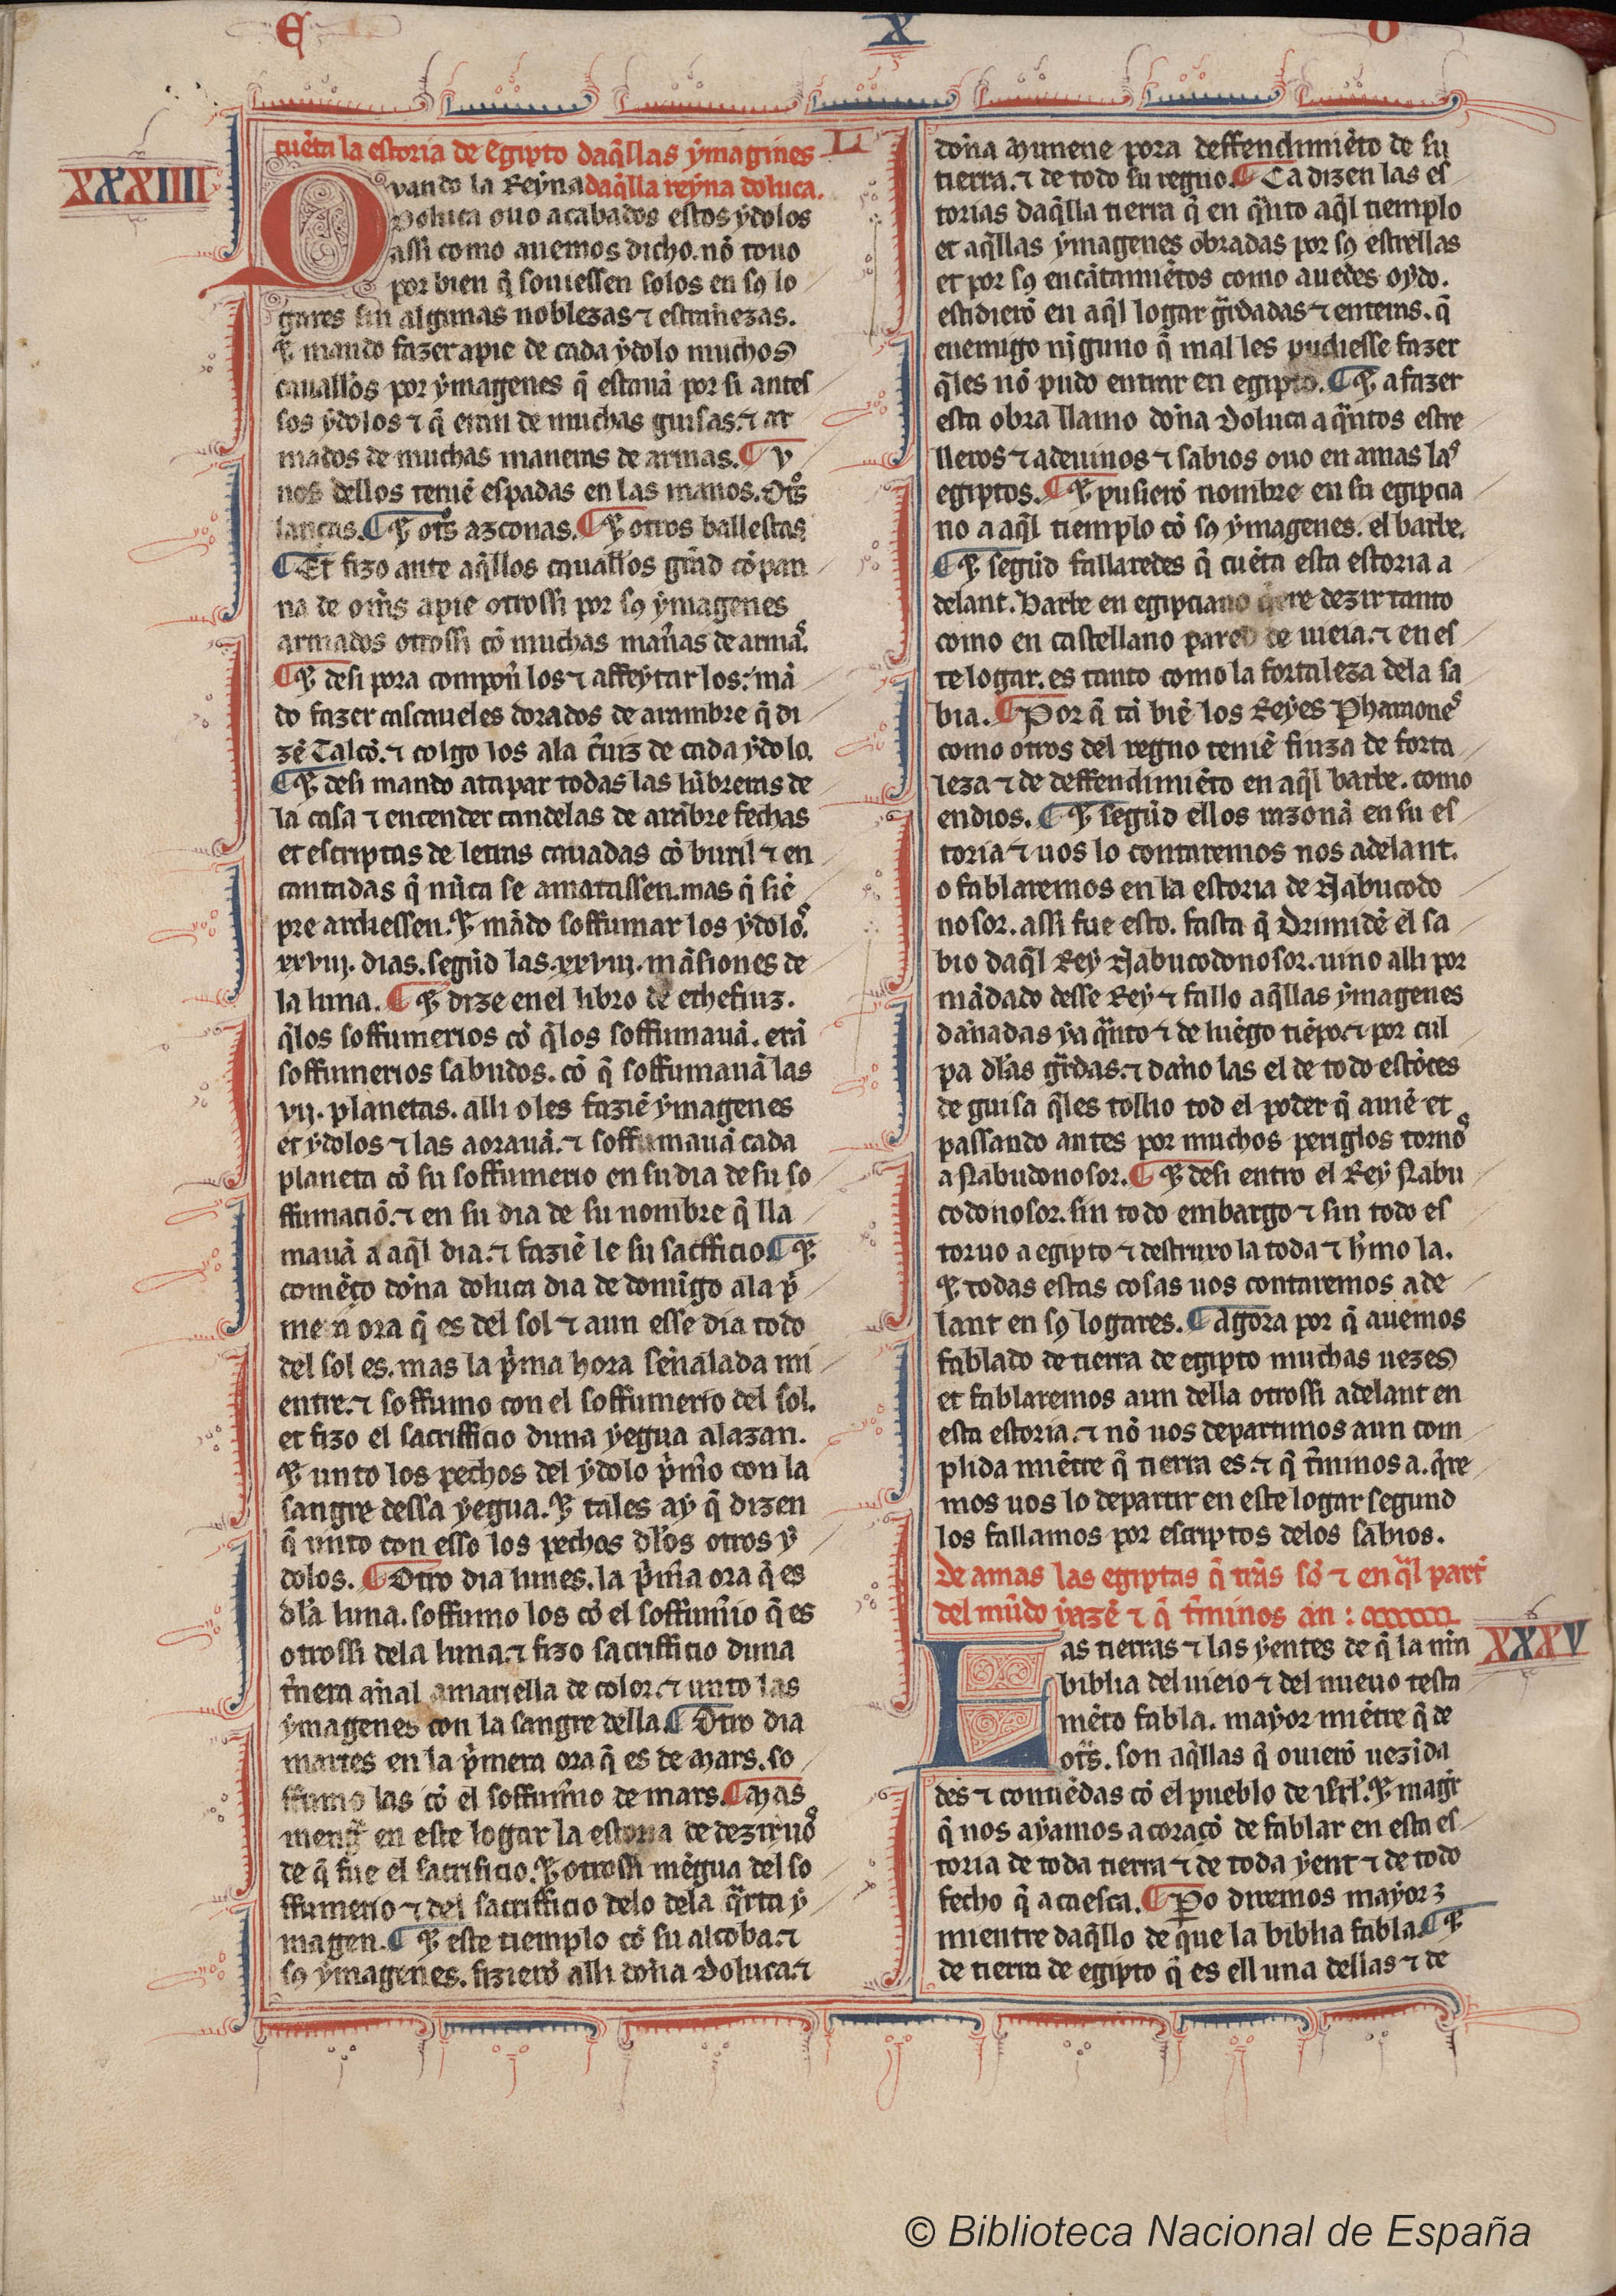 E X O
XXXIIII
cuēta la estoria de egipto daq̃llas ymagines
Quando la Reyna daq̃lla reyna doluca.
Doluca ouo acabados estos ydolos
assi como auemos dicho. nō touo
por bien q̃ souiessen solos en sꝯ lo
gares sin algunas noblezas ⁊ estrañezas.
⁊ mando fazer apie de cada ydolo muchos
cauall̃os por ymagenes q̃ estauā por si antel
los ydolos ⁊ q̃ eran de muchas guisas. ⁊ ar
mados de muchas maneras de armas. ¶ V
nos dellos teniē espadas en las manos. Ot̃s
lanças. ¶ ⁊ ot̃s azconas. ¶ ⁊ otros ballestas
¶ Et fizo ante aq̃llos cauall̃os grād cōpan
na de om̃s apie otrossi por sꝯ ymagenes
armados otrossi cō muchas mañas de armas.
¶ ⁊ desi pora compon̄ los ⁊ affeytar los: mā
do fazer cascaueles dorados de arambre q̃ di
zē Talcō. ⁊ colgo los ala c̃uiz de cada ydolo.
¶ ⁊ desi mando atapar todas las lūbreras de
la casa ⁊ encender candelas de arābre fechas
et escriptas de letras cauadas cō buril ⁊ en
cantadas q̃ nūca se amatassen. mas q̃ siē
pre ardiessen. ⁊ mādo soffumar los ydolos.
xxviij. dias. segūd las .xxviij. māsiones de
la luna. ¶ ⁊ dize enel libro de echefiuz.
q̃los soffumerios cō q̃los soffumauā. erā
soffumerios sabudos. cō q̃ soffumauā las
vij. planetas. alli oles faziē ymagenes
et ydolos ⁊ las aorauā. ⁊ soffumauā cada
planeta cō su soffumerio en su dia de su so
ffumaciō. ⁊ en su dia de su nombre q̃ lla
mauā a aq̃l dia. ⁊ faziē le su sac̃fficio ¶ ⁊
comēço doña doluca dia de domīgo ala p̃
mera ora q̃ es del sol ⁊ aun esse dia todo
del sol es. mas la p̃ma hora señalada mi
entre. ⁊ soffumo con el soffumerio del sol.
et fizo el sacrifficio duna yegua alazan.
⁊ unto los pechos del ydolo p̃m̃o con la
sangre dessa yegua. ⁊ tales ay q̃ dizen
q̃ unto con esso los pechos dl̃os otros y
dolos. ¶ Otro dia lunes. la p̃m̃a ora q̃ es
dl̃a luna. soffumo los cō el soffum̃io q̃ es
otrossi dela luna. ⁊ fizo sacrifficio duna
t̃nera añal amariella de color. ⁊ unto las
ymagenes con la sangre della. ¶ Otro dia
martes en la p̃mera ora q̃ es de Mars. so
ffumo las cō el soffum̃io de mars. ¶ Mas
mengua en este logar la estoria de dezir uos
de q̃ fue el sacrificio. ⁊ otrossi mēgua del so
ffumerio ⁊ del sacrifficio delo dela q̃rta y
magen. ¶ ⁊ este tiemplo cō su alcoba. ⁊
sꝯ ymagenes. fizierō alli doña Doluca. ⁊
doña Munene pora deffendimiēto de su
tierra. ⁊ de todo su regno. ¶ Ca dizen las es
torias daq̃lla tierra q̃ en q̃nto aq̃l tiemplo
et aq̃llas ymagenes obradas por sꝯ estrellas
et por sꝯ encātamiētos como auedes oydo.
estidierō en aq̃l logar gr̃dadas ⁊ enteras. q̃
enemigo nīguno q̃ mal les pudiesse fazer
q̃les nō pudo entrar en egipto. ¶ ⁊ a fazer
esta obra llamo doña Doluca a q̃ntos estre
lleros ⁊ adeuinos ⁊ sabios ouo en amas las
egiptos. ¶ ⁊ pusierō nombre en su egipcia
no a aq̃l tiemplo cō sꝯ ymagenes. el barbe.
¶ ⁊ segūd fallaredes q̃ cuēta esta estoria a
delant. Barbe en egipciano q̃ere dezir tanto
como en castellano pared de uieia. ⁊ en es
te logar. es tanto como la fortaleza dela sa
bia. ¶ Por q̃ tā biē los Reyes Pharaones
como otros del regno teniē fiuza de forta
leza ⁊ de deffendimiēto en aq̃l barbe. como
en dios. ¶ ⁊ segūd ellos razonā en su es
toria ⁊ uos lo contaremos nos adelant.
o fablaremos en la estoria de Nabucodo
nosor. assi fue esto. fasta q̃ Drimidē el sa
bio daq̃l Rey Nabucodonosor. uino alli por
mādado desse Rey ⁊ fallo aq̃llas ymagenes
dañadas ya q̃nto ⁊ de luēgo tiēpo. ⁊ por cul
pa dl̃as gr̃das. ⁊ daño las el de todo estōces
de guisa q̃les tollio tod el poder q̃ auiē et
passando antes por muchos periglos tornos
a Nabudonosor. ¶ ⁊ desi entro el Rey Nabu
codonosor. sin todo embargo ⁊ sin todo es
toruo a egipto ⁊ destruxo la toda ⁊ h̃mo la.
⁊ todas estas cosas uos contaremos ade
lant en sꝯ logares. ¶ Agora por q̃ auemos
fablado de tierra de egipto muchas uezes
et fablaremos aun della otrossi adelant en
esta estoria. ⁊ nō uos departimos aun com
plida miētre q̃ tierra es. ⁊ q̃ t̃minos a. q̃re
mos uos lo departir en este logar segund
los fallamos por escriptos delos sabios.
De amas las egiptas q̃ tr̃as sō ⁊ en q̃l part̃
del mūdo yazē ⁊ q̃ t̃minos an:
XXXV
Las tierras ⁊ las yentes de q̃ la nr̃a
biblia del uieio ⁊ del nueuo testa
mēto fabla. mayor miētre q̃ de
ot̃s. son aq̃llas q̃ ouierō uezīda
des ⁊ conuēdas cō el pueblo de isrl̃. ⁊ mag̃r
q̃ nos ayamos a coraçō de fablar en esta es
toria de toda tierra ⁊ de toda yent ⁊ de todo
fecho q̃ acaesca. ¶ Po diremos mayor
mientre daq̃llo de que la biblia fabla. ¶ ⁊
de tierra de egipto q̃ es ell una dellas ⁊ de
© Biblioteca Nacional de España